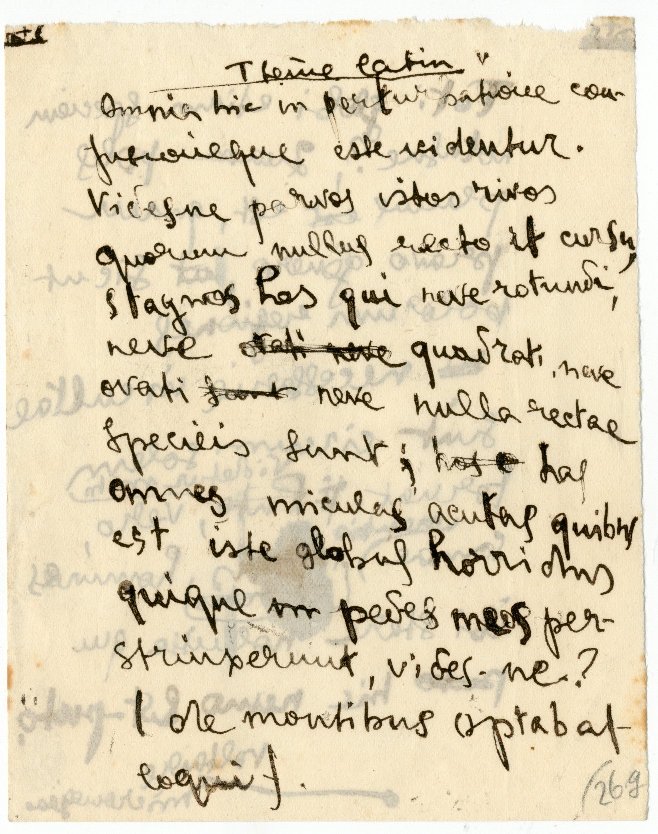 Thème latin
Omnia hic in perturbatione con-
fusioneque esse videntur.
Videsne parvos istos rivos
quorum nullus recto it cursu,
stagnos hos qui neve rotundi,
neve ovati neve quadrati, neve
ovati sunt neve nulla rectae
speciei sunt; has
omnes miculas acutas quibus
est iste globus horridus
quique pedes meos per-
strinxerunt, vides-ne?
(de montibus optabat
loqui).
269